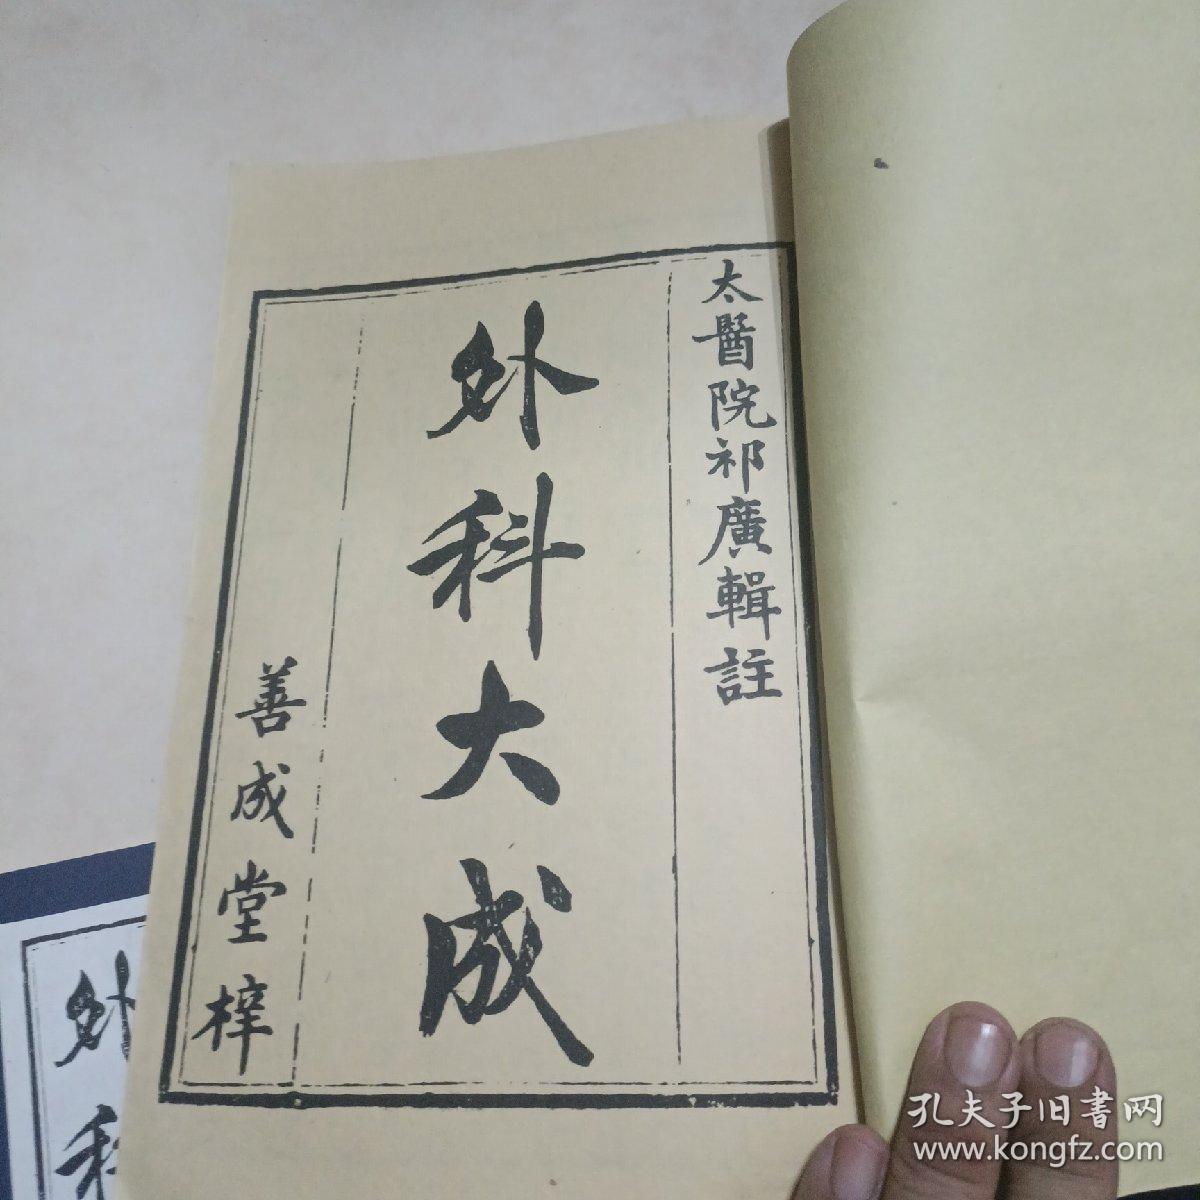 太醫院祁廣輯註
外科大成
善成堂梓
外科
孔夫子旧書网
www.kongfz.com